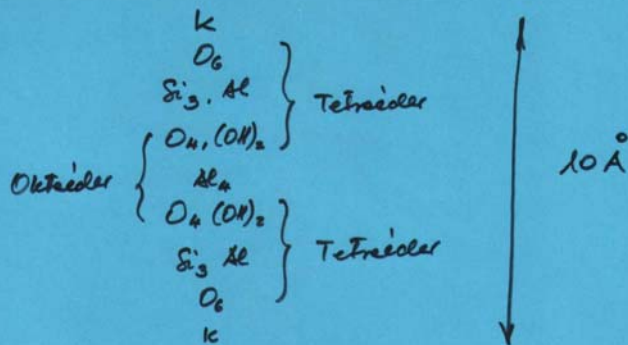 K
O₆
Si₃, Al
Tetraéder
O₄, (OH)₂
Oktaéder
Al₄
10 Å
O₄ (OH)₂
Si₃ Al
Tetraéder
O₆
K